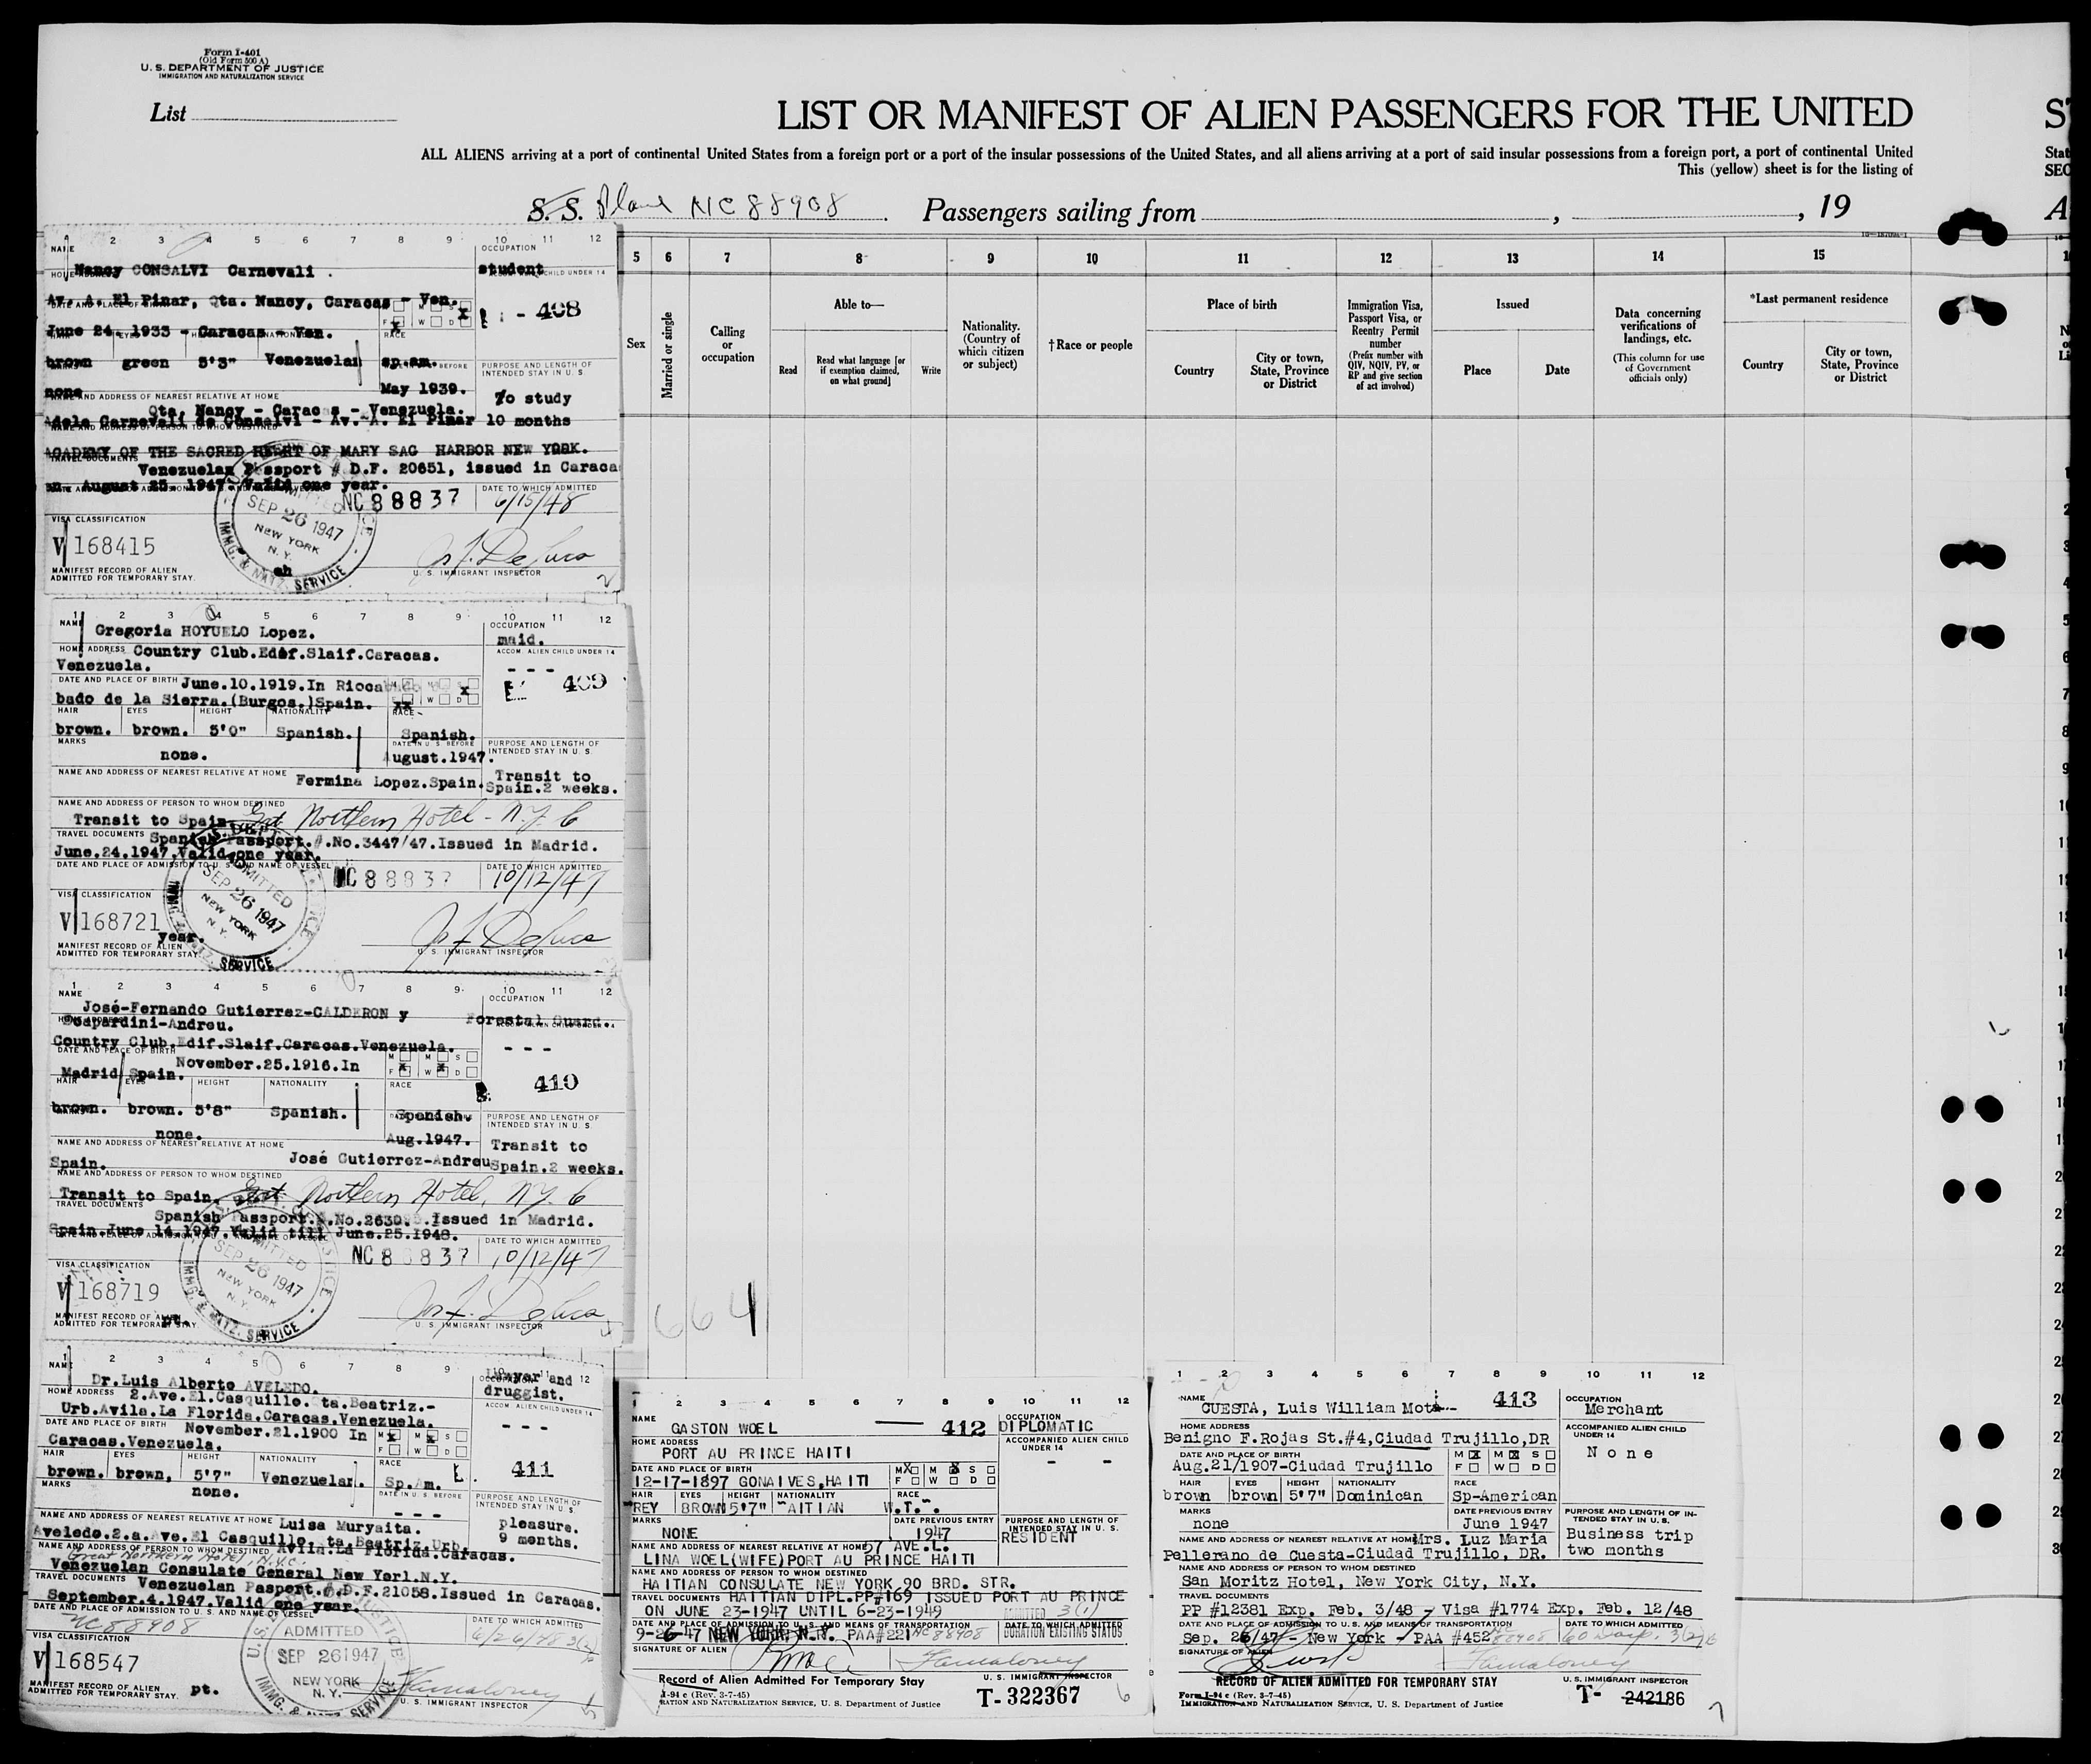 Form I-401
(Old Form 500 A)
U. S. DEPARTMENT OF JUSTICE
IMMIGRATION AND NATURALIZATION SERVICE
List
LIST OR MANIFEST OF ALIEN PASSENGERS FOR THE UNITED
ALL ALIENS arriving at a port of continental United States from a foreign port or a port of the insular possessions of the United States, and all aliens arriving at a port of said insular possessions from a foreign port, a port of continental United
This (yellow) sheet is for the listing of
S. S. Plane NC88908 Passengers sailing from , , 19
5 6 7 8 9 10 11 12 13 14 15
Sex
Married or single
Calling or occupation
Able to—
Read
Read what language [or if exemption claimed, on what ground]
Write
Nationality. (Country of which citizen or subject)
†Race or people
Place of birth
Country
City or town, State, Province or District
Immigration Visa, Passport Visa, or Reentry Permit number
(Prefix number with QIV, NQIV, PV, or RP and give section of act involved)
Issued
Place
Date
Data concerning verifications of landings, etc.
(This column for use of Government officials only)
*Last permanent residence
Country
City or town, State, Province or District
1 2 3 4 5 6 7 8 9 10 11 12
NAME
Nancy CONSALVI Carnevali .
OCCUPATION
student
CHILD UNDER 14
Av. A. El Pinar, Qta. Nancy, Caracas - Ven.
408
June 24, 1933 - Caracas - Ven.
brown green 5'3" Venezuelan sp.am.
none
May 1939.
PURPOSE AND LENGTH OF INTENDED STAY IN U. S.
To study
10 months
NAME AND ADDRESS OF NEAREST RELATIVE AT HOME
Qta. Nancy - Caracas - Venezuela.
Adela Carnevali de Consalvi - Av. A. El Pinar
ACADEMY OF THE SACRED HEART OF MARY SAG HARBOR NEW YORK.
TRAVEL DOCUMENTS
Venezuelan Passport # D.F. 20651, issued in Caraca
on August 25, 1947. Valid one year.
NC88837
DATE TO WHICH ADMITTED
6/15/48
ADMITTED
SEP 26 1947
NEW YORK
N. Y.
IMMG. & NATZ. SERVICE
VISA CLASSIFICATION
V 168415
MANIFEST RECORD OF ALIEN
ADMITTED FOR TEMPORARY STAY.
U. S. IMMIGRANT INSPECTOR
2
1 2 3 4 5 6 7 8 9 10 11 12
NAME
Gregoria HOYUELO Lopez.
OCCUPATION
maid.
HOME ADDRESS Country Club.Edif.Slaif.Caracas.
Venezuela.
ACCOM. ALIEN CHILD UNDER 14
- - -
DATE AND PLACE OF BIRTH June.10.1919.In Rioca
bado de la Sierra.(Burgos.)Spain.
409
HAIR EYES HEIGHT NATIONALITY RACE
brown. brown. 5'0" Spanish. Spanish.
MARKS
none.
DATE IN U. S. BEFORE
August.1947.
PURPOSE AND LENGTH OF INTENDED STAY IN U. S.
Transit to
Spain.2 weeks.
NAME AND ADDRESS OF NEAREST RELATIVE AT HOME Fermina Lopez.Spain.
NAME AND ADDRESS OF PERSON TO WHOM DESTINED
Transit to Spain. Grt Northern Hotel - N.Y. C
TRAVEL DOCUMENTS Spanish Passport.#.No.3447/47.Issued in Madrid.
June.24.1947.Valid one year.
DATE AND PLACE OF ADMISSION TO U. S. AND NAME OF VESSEL
NC88837
DATE TO WHICH ADMITTED
10/12/47
ADMITTED
SEP 26 1947
NEW YORK
N. Y.
SERVICE
VISA CLASSIFICATION
V 168721
year.
MANIFEST RECORD OF ALIEN
ADMITTED FOR TEMPORARY STAY.
U. S. IMMIGRANT INSPECTOR
1 2 3 4 5 6 7 8 9 10 11 12
NAME
José-Fernando Gutierrez-CALDERON y
OCCUPATION
Forestal Guard.
Country Club.Edif.Slaif.Caracas.Venezuela.
- - -
DATE AND PLACE OF BIRTH November.25.1916.In
Madrid Spain.
410
HAIR EYES HEIGHT NATIONALITY RACE
brown. brown. 5'8" Spanish. Spanish.
none.
Aug.1947.
PURPOSE AND LENGTH OF INTENDED STAY IN U. S.
Transit to
Spain.2 weeks.
NAME AND ADDRESS OF NEAREST RELATIVE AT HOME
José Gutierrez-Andreu
Spain.
NAME AND ADDRESS OF PERSON TO WHOM DESTINED
Transit to Spain. Grt. Northern Hotel, N.Y. C
TRAVEL DOCUMENTS
Spanish Passport. .No.2630. .Issued in Madrid.
Spain June 14.1947.Valid till June.25.1948.
NC8 8837
DATE TO WHICH ADMITTED
10/12/47
SEP 26 1947
NEW YORK
N. Y.
IMMG. & NATZ. SERVICE
VISA CLASSIFICATION
V 168719
MANIFEST RECORD OF ALIEN
ADMITTED FOR TEMPORARY STAY.
U. S. IMMIGRANT INSPECTOR
664
1 2 3 4 5 6 7 8 9 12
NAME
Dr.Luis Alberto AVELEDO.
druggist.
HOME ADDRESS 2.Ave.El.Casquillo. ta.Beatriz.-
Urb.Avila.La Florida.Caracas.Venezuela.
ACCOM. ALIEN CHILD UNDER 14
- - -
DATE AND PLACE OF BIRTH November.21.1900 In
Caracas.Venezuela.
411
HAIR EYES HEIGHT NATIONALITY RACE
brown. brown. 5'7" Venezuelan. Sp.Am.
MARKS
none.
DATE IN U. S. BEFORE
- - -
PURPOSE AND LENGTH OF INTENDED STAY IN U. S.
pleasure.
9 months.
NAME AND ADDRESS OF NEAREST RELATIVE AT HOME Luisa Muryaita.
Aveledo.2.a.Ave.El Casquillo. ta.Beatriz.Urb.
Avila.La Florida.Caracas.
NAME AND ADDRESS OF PERSON TO WHOM DESTINED
Great Northern Hotel, N.Y.C.
Venezuelan Consulate General New Yorl.N.Y.
TRAVEL DOCUMENTS Venezuelan Pasport.#.D.F.21058.Issued in Caracas.
September.4.1947.Valid one year.
DATE AND PLACE OF ADMISSION TO U. S. AND NAME OF VESSEL
NC88908
DATE TO WHICH ADMITTED
6/26/48
ADMITTED
SEP 26 1947
NEW YORK
N. Y.
VISA CLASSIFICATION
V 168547
MANIFEST RECORD OF ALIEN
ADMITTED FOR TEMPORARY STAY.
pt.
U. S. IMMIGRANT INSPECTOR
5
1 2 3 4 5 6 7 8 9 10 11 12
NAME
GASTON WOEL — 412
OCCUPATION
DIPLOMATIC
HOME ADDRESS
PORT AU PRINCE HAITI
ACCOMPANIED ALIEN CHILD UNDER 14
- -
DATE AND PLACE OF BIRTH
12-17-1897 GONAIVES,HAITI
HAIR EYES HEIGHT NATIONALITY RACE
REY BROWN 5'7" AITIAN W.I.
MARKS
NONE
DATE PREVIOUS ENTRY
1947
PURPOSE AND LENGTH OF INTENDED STAY IN U. S.
RESIDENT
NAME AND ADDRESS OF NEAREST RELATIVE AT HOME 57 AVE.L.
LINA WOEL(WIFE)PORT AU PRINCE HAITI
NAME AND ADDRESS OF PERSON TO WHOM DESTINED
HAITIAN CONSULATE NEW YORK 90 BRD. STR.
TRAVEL DOCUMENTS HAITIAN DIPL.PP#169 ISSUED PORT AU PRINCE
ON JUNE 23-1947 UNTIL 6-23-1949
ADMITTED 3(1)
DATE AND PLACE OF ADMISSION TO U. S. AND MEANS OF TRANSPORTATION
DATE TO WHICH ADMITTED
9-26-47 NEW YORK, N.Y. PAA#221 NC88908 DURATION EXISTING STATUS
SIGNATURE OF ALIEN
Famaloney
Record of Alien Admitted For Temporary Stay
U. S. IMMIGRANT INSPECTOR
I-94 c (Rev. 3-7-45)
RATION AND NATURALIZATION SERVICE, U. S. Department of Justice
T- 322367
6
1 2 3 4 5 6 7 8 9 10 11 12
NAME
CUESTA, Luis William Mota- 413
OCCUPATION
Merchant
HOME ADDRESS
Benigno F.Rojas St.#4,Ciudad Trujillo,DR
ACCOMPANIED ALIEN CHILD UNDER 14
None
DATE AND PLACE OF BIRTH
Aug.21/1907-Ciudad Trujillo
HAIR EYES HEIGHT NATIONALITY RACE
brown brown 5'7" Dominican Sp-American
MARKS
none
DATE PREVIOUS ENTRY
June 1947
PURPOSE AND LENGTH OF INTENDED STAY IN U. S.
Business trip
two months
NAME AND ADDRESS OF NEAREST RELATIVE AT HOME Mrs. Luz Maria
Pellerano de Cuesta-Ciudad Trujillo, DR.
NAME AND ADDRESS OF PERSON TO WHOM DESTINED
San Moritz Hotel, New York City, N.Y.
TRAVEL DOCUMENTS
PP #12381 Exp. Feb. 3/48 - Visa #1774 Exp. Feb. 12/48
DATE AND PLACE OF ADMISSION TO U. S. AND MEANS OF TRANSPORTATION
DATE TO WHICH ADMITTED
Sep. 26/47 - New York - PAA #452 88908 60 Days. 3(2)
SIGNATURE OF ALIEN
Famaloney
RECORD OF ALIEN ADMITTED FOR TEMPORARY STAY
U. S. IMMIGRANT INSPECTOR
Form I-94 c (Rev. 3-7-45)
IMMIGRATION AND NATURALIZATION SERVICE, U. S. Department of Justice
T- 242186
7